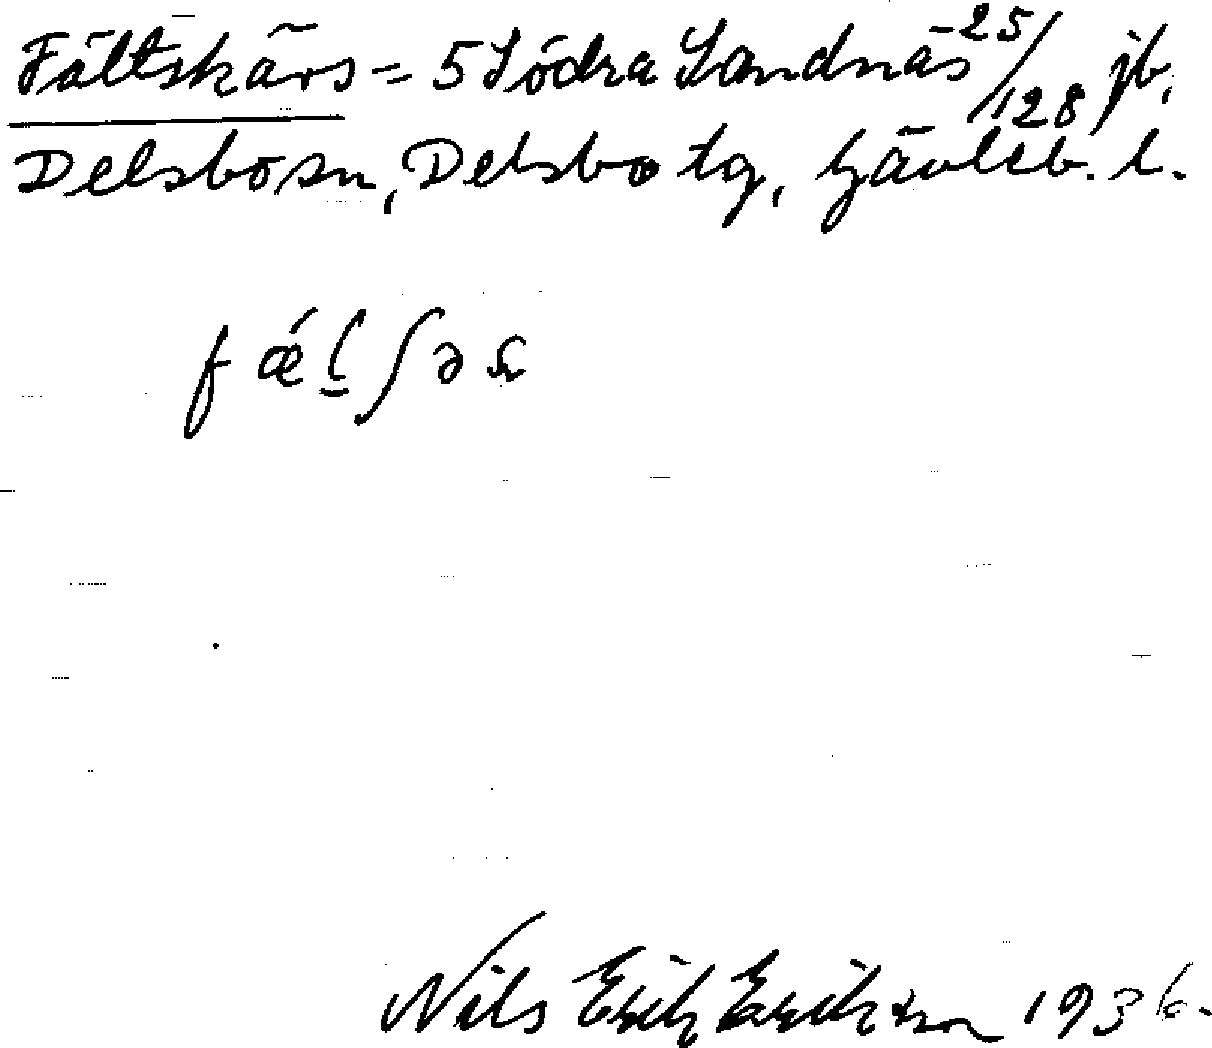 Fältskärs = 5 Södra Sannäs 25/128 jb,
Delsbo sn, Delsbo tg, Gävleb. l.
Nils Erik Erikson 1936.